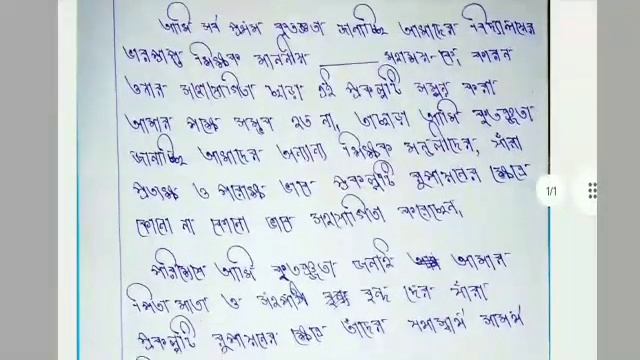 আমি সর্ব প্রথম কৃতজ্ঞতা জানাচ্ছি আমাদের বিদ্যালয়ের
ভারপ্রাপ্ত শিক্ষক মাননীয় ______ মহাশয় কে, কারন
ওনার সহযোগিতা ছাড়া এই প্রকল্পটি সম্পূর্ন করা
আমার পক্ষে সম্ভব হত না, তাছাড়া আমি কৃতজ্ঞতা
জানাচ্ছি আমাদের অন্যান্য শিক্ষক মন্ডলীদের, যাঁরা
প্রত্যক্ষ ও পরোক্ষ ভাবে প্রকল্পটি রূপায়নের ক্ষেত্রে
কোনো না কোনো ভাবে সহযোগিতা করেছেন,
পরিশেষে আমি কৃতজ্ঞতা জানাই আমার
পিতা মাতা ও সহপাঠী বৃন্দ দের যাঁরা
প্রকল্পটি রূপায়নের ক্ষেত্রে তাঁদের
1/1